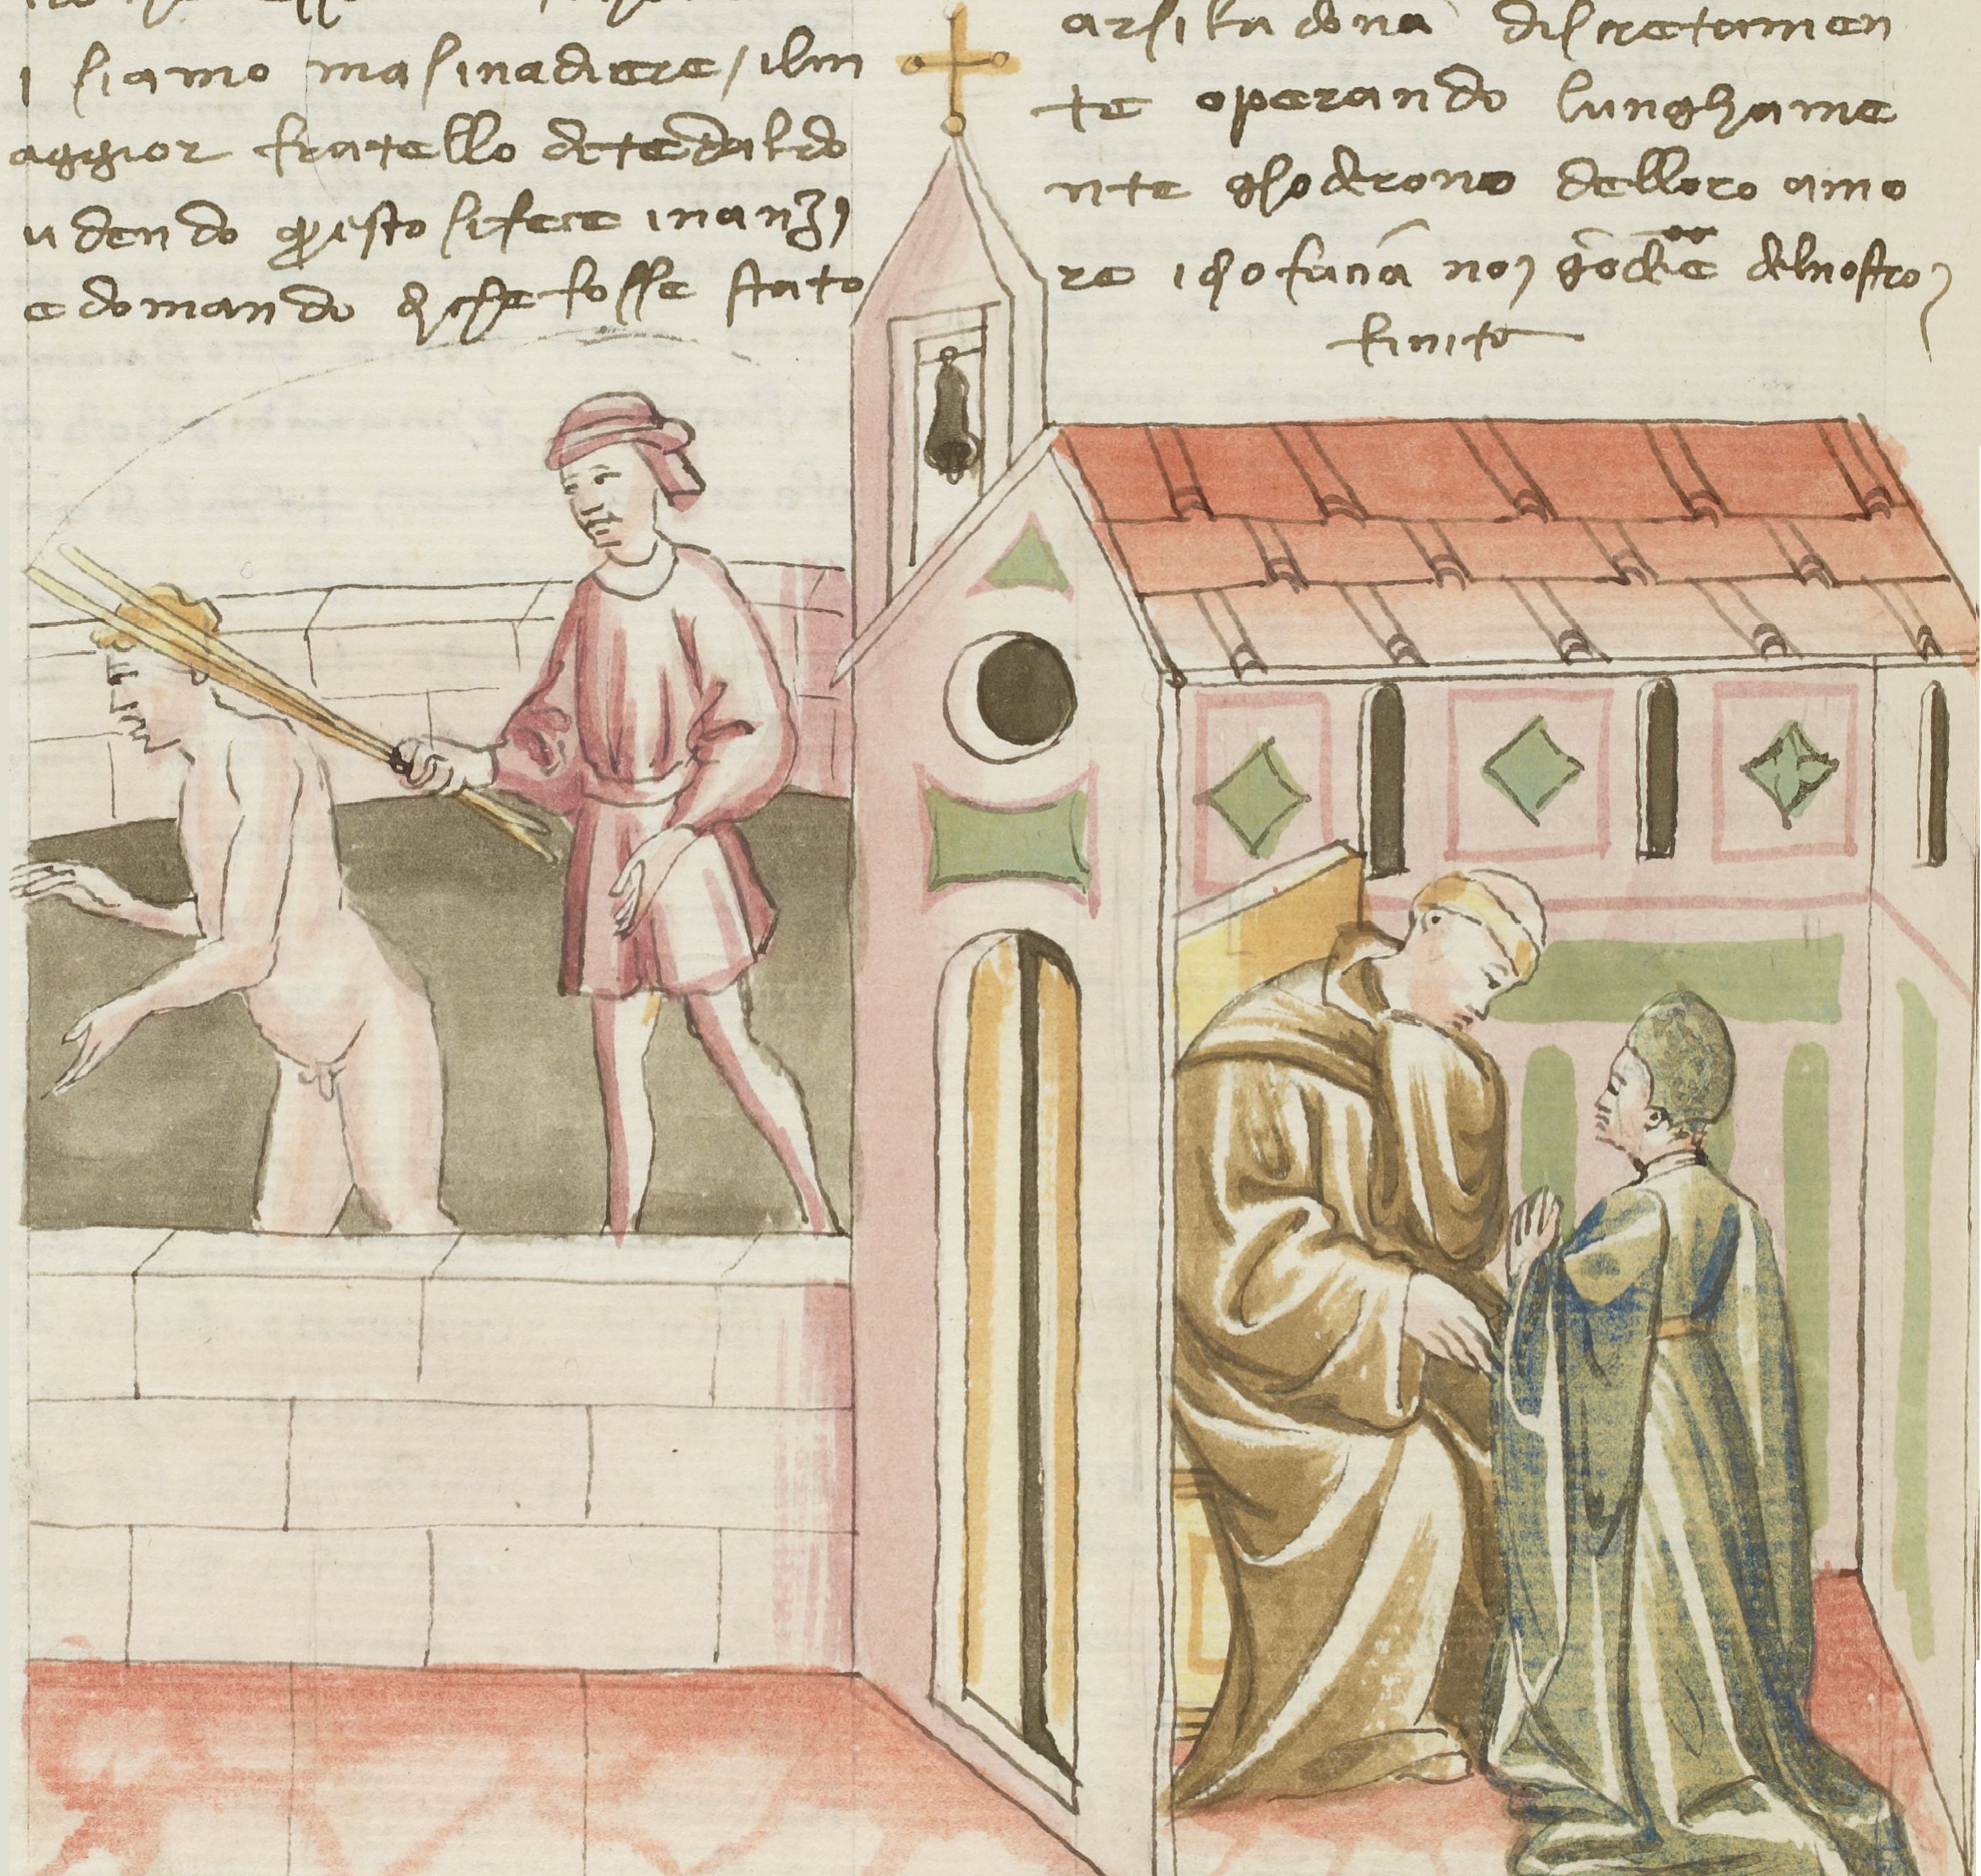 i siamo masinadiere / ilm
aggior fratello detedaldo
udendo questo sifece inanzi
e domando che fosse stato
arsita dona discretamen
te operando lunghame
nte ghoderono delloro amo
re idio facia noi godere delnostro
finito